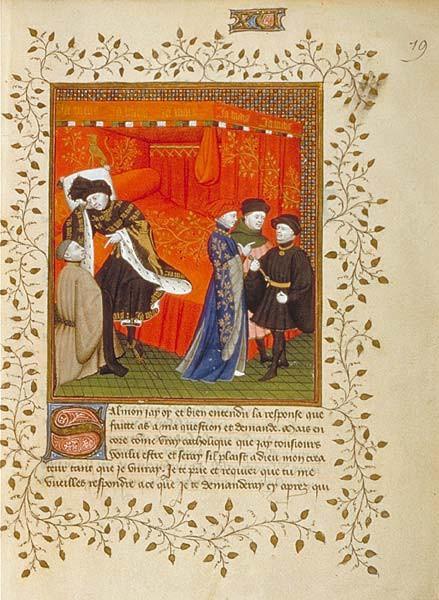 19
Ja mais Ja mais Ja mais
Salmon jay oy et bien entendu la response que
faitte as a ma question et demande. Mais en
core come vray catholique que jay tousiours
voulu estre et seray sil plaist a dieu mon crea
teur tant que je vivray. Je te prie et requier que tu me
vueilles respondre a ce que je te demanderay cy apres qui